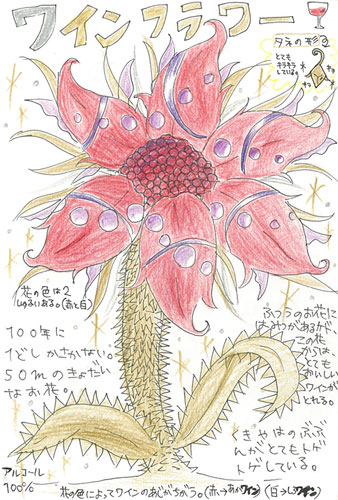 ワインフラワー
タネの形
とても
キラキラ
している。
花の色は2
しゅるいある。(赤と白)
100年に
1どしかさかない。
50mのきょだい
なお花。
ふつうのお花に
はみつがあるが、
この花
からは、
とても
おいしい
ワインが
とれる。
くきやはのぶぶ
んがとてもトゲ
トゲしている。
アルコール
100%
花の色によってワインのあじがちがう。(赤→赤ワイン)(白→白ワイン)